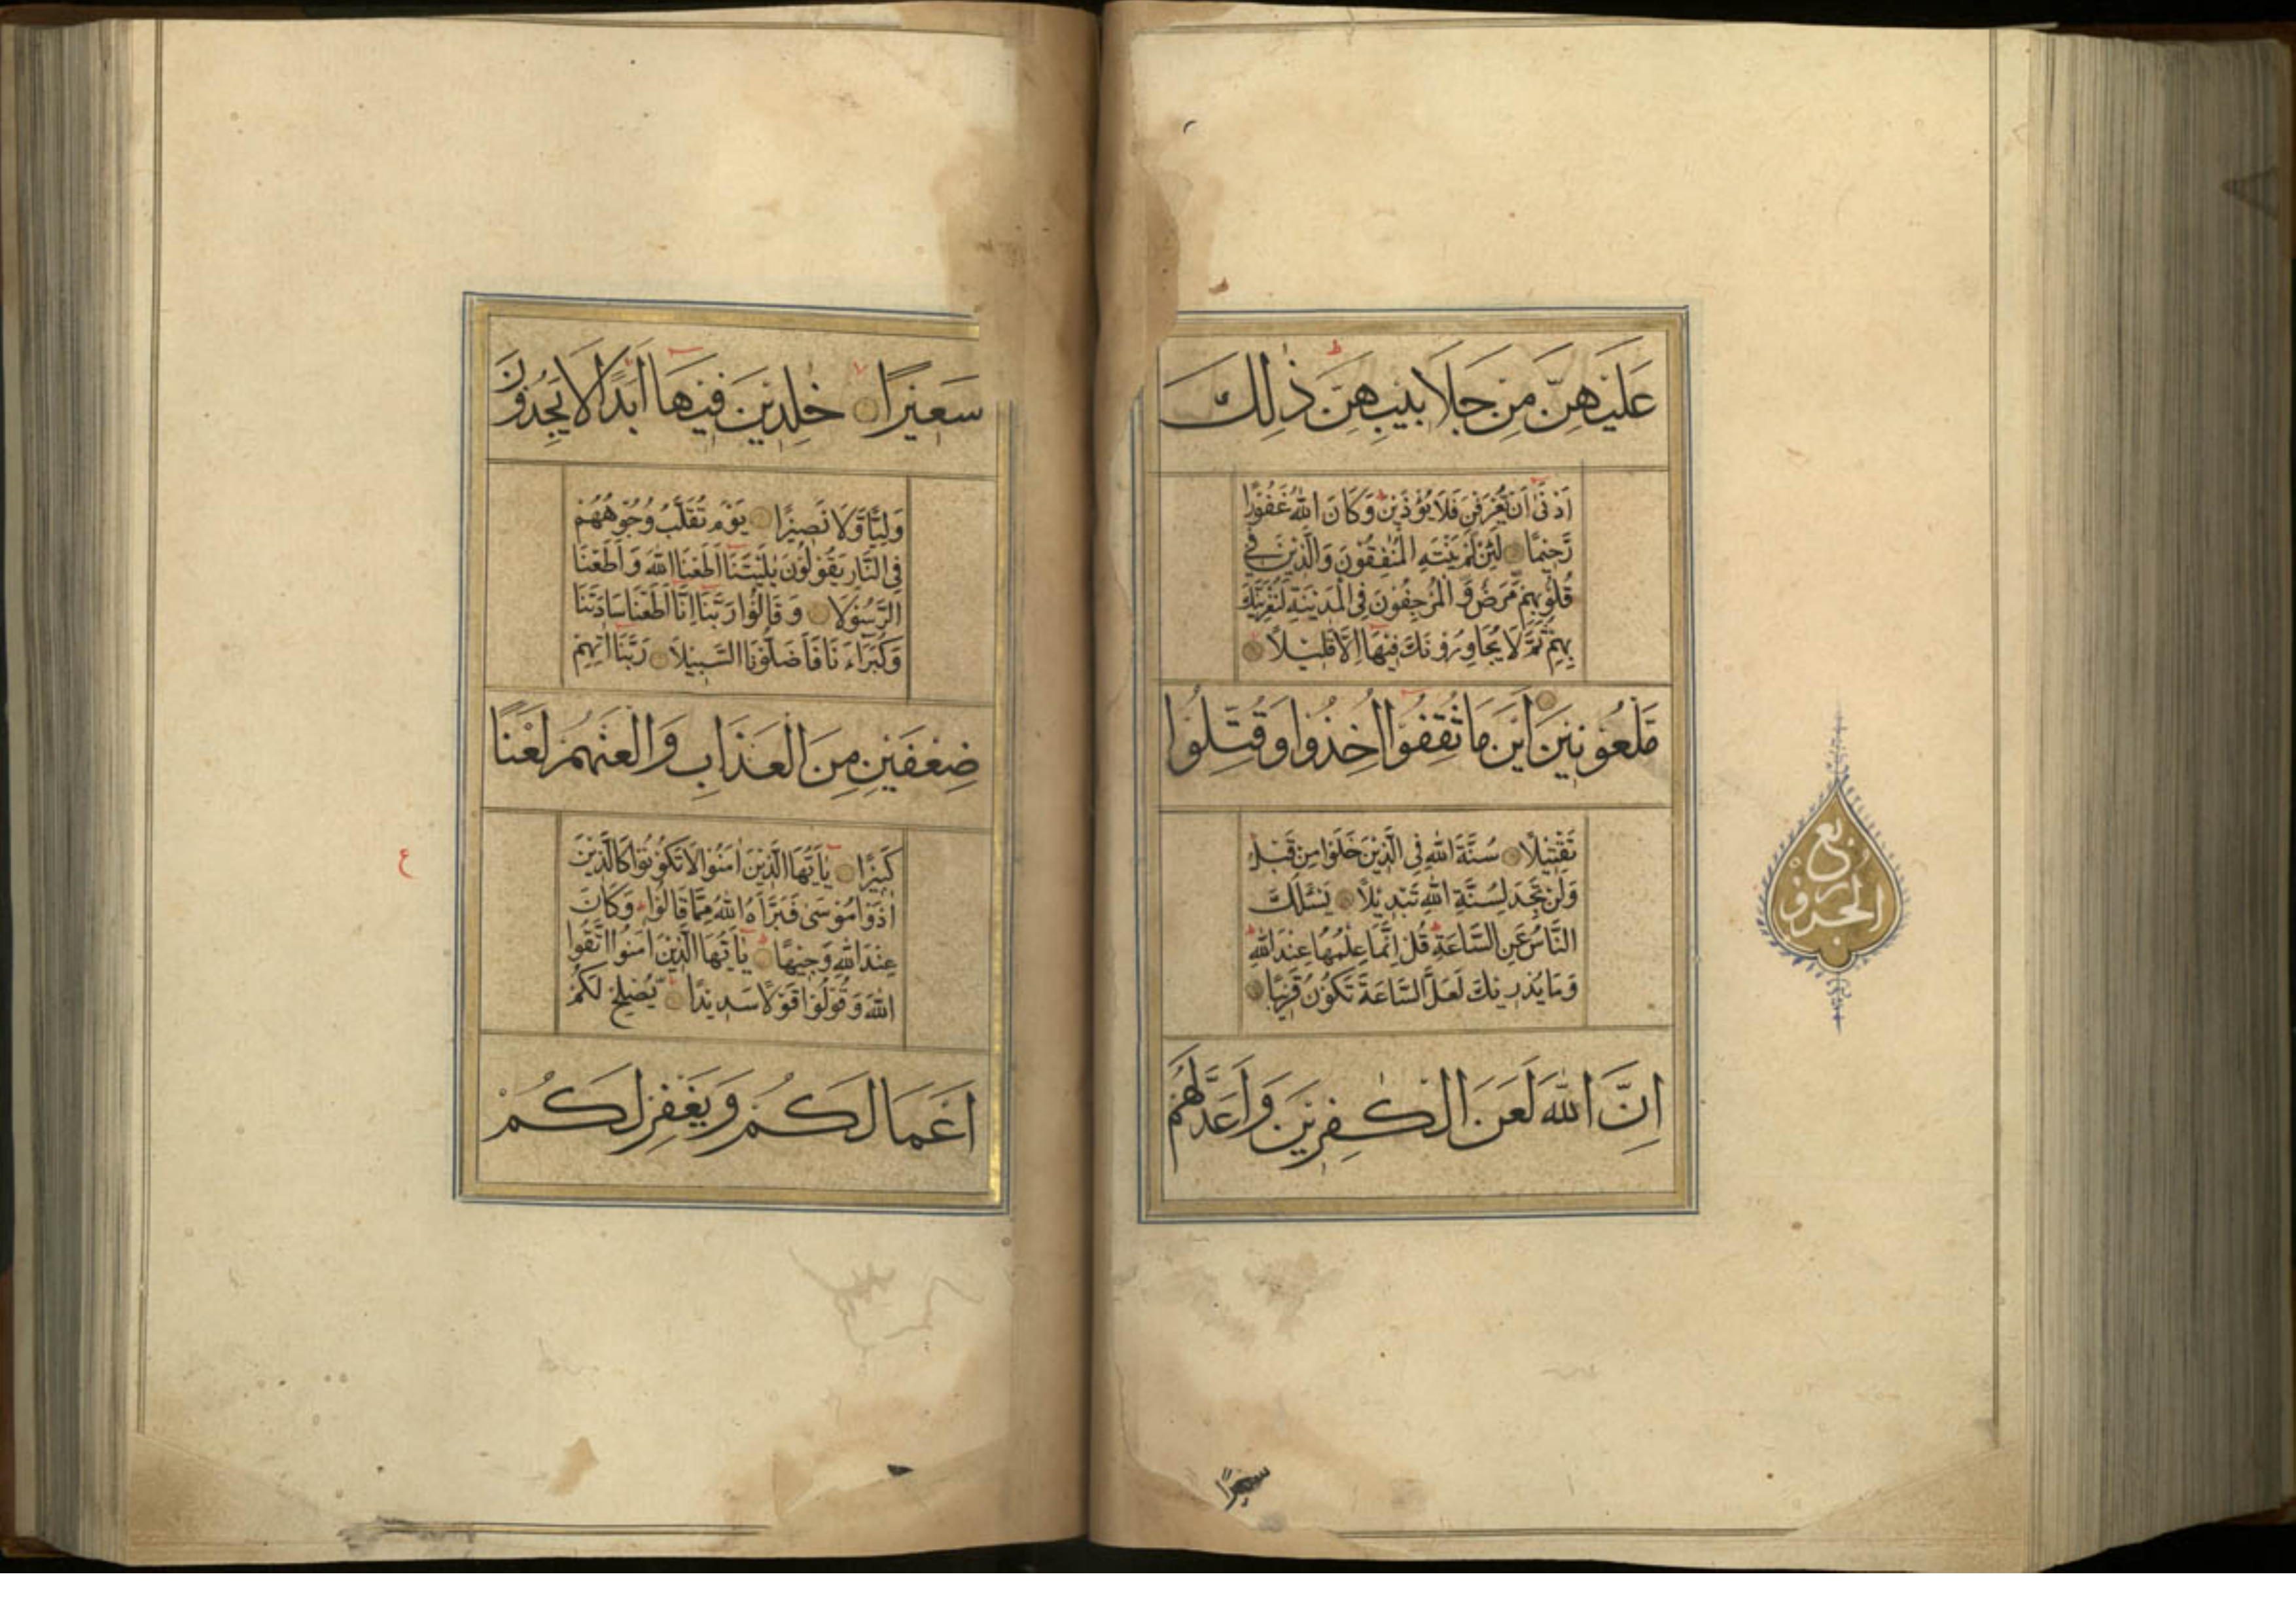 عَلَيْهِنَّ مِنْ جَلَابِيبِهِنَّ ذٰلِكَ
اَدْنٰى اَنْ يُعْرَفْنَ فَلَا يُؤْذَيْنَ وَكَانَ اللّٰهُ غَفُورًا
رَحِيمًا لَئِنْ لَمْ يَنْتَهِ الْمُنٰفِقُونَ وَالَّذِينَ فِي
قُلُوبِهِمْ مَرَضٌ وَالْمُرْجِفُونَ فِي الْمَدِينَةِ لَنُغْرِيَنَّكَ
بِهِمْ ثُمَّ لَا يُجَاوِرُونَكَ فِيهَا اِلَّا قَلِيلًا
مَلْعُونِينَ اَيْنَ مَا ثُقِفُوا اُخِذُوا وَقُتِّلُوا
تَقْتِيلًا سُنَّةَ اللّٰهِ فِي الَّذِينَ خَلَوْا مِنْ قَبْلُ
وَلَنْ تَجِدَ لِسُنَّةِ اللّٰهِ تَبْدِيلًا يَسْـَٔلُكَ
النَّاسُ عَنِ السَّاعَةِ قُلْ اِنَّمَا عِلْمُهَا عِنْدَ اللّٰهِ
وَمَا يُدْرِيكَ لَعَلَّ السَّاعَةَ تَكُونُ قَرِيبًا
اِنَّ اللّٰهَ لَعَنَ الْكٰفِرِينَ وَاَعَدَّ لَهُمْ
ربع
الجزو
سعيرًا
سَعِيرًا خٰلِدِينَ فِيهَا اَبَدًا لَا يَجِدُونَ
وَلِيًّا وَلَا نَصِيرًا يَوْمَ تُقَلَّبُ وُجُوهُهُمْ
فِي النَّارِ يَقُولُونَ يٰلَيْتَنَا اَطَعْنَا اللّٰهَ وَاَطَعْنَا
الرَّسُولَا وَقَالُوا رَبَّنَا اِنَّا اَطَعْنَا سَادَتَنَا
وَكُبَرَاءَنَا فَاَضَلُّونَا السَّبِيلَا رَبَّنَا اٰتِهِمْ
ضِعْفَيْنِ مِنَ الْعَذَابِ وَالْعَنْهُمْ لَعْنًا
كَبِيرًا يٰاَيُّهَا الَّذِينَ اٰمَنُوا لَا تَكُونُوا كَالَّذِينَ
اٰذَوْا مُوسٰى فَبَرَّاَهُ اللّٰهُ مِمَّا قَالُوا وَكَانَ
عِنْدَ اللّٰهِ وَجِيهًا يٰاَيُّهَا الَّذِينَ اٰمَنُوا اتَّقُوا
اللّٰهَ وَقُولُوا قَوْلًا سَدِيدًا يُصْلِحْ لَكُمْ
اَعْمَالَكُمْ وَيَغْفِرْ لَكُمْ
ع